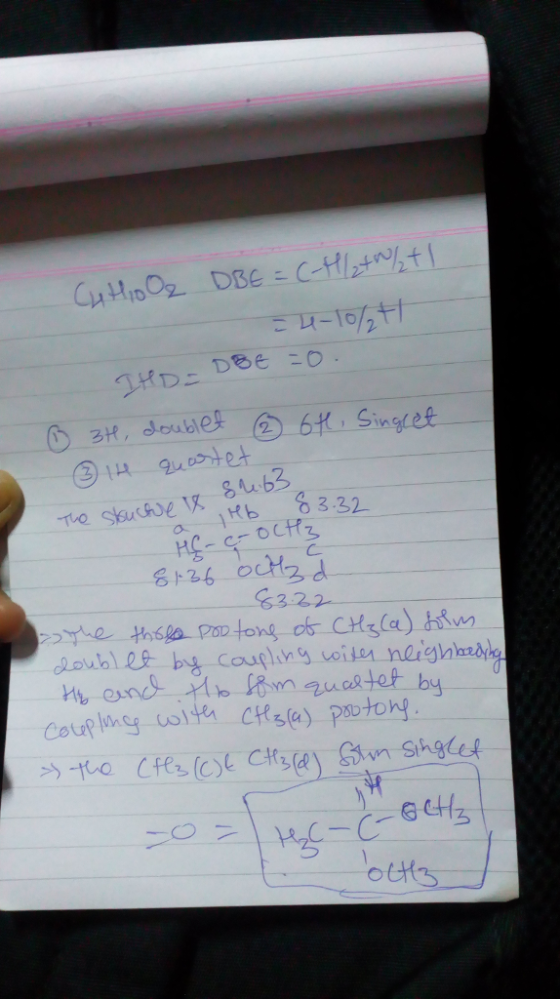 C4H10O2 DBE = C-H/2+N/2+1
= 4-10/2+1
IHD = DBE = 0.
① 3H, doublet ② 6H, Singlet
③ 1H quartet
The structure is δ4.63
a Hb δ3.32
H3C-C-OCH3
δ1.36 OCH3 d c
δ3.32
⇒ The three protons of CH3(a) form
doublet by coupling with neighboring
Hb and Hb form quartet by
coupling with CH3(a) protons.
⇒ The CH3(c) & CH3(d) form singlet
H
=0 = H3C-C-OCH3
OCH3